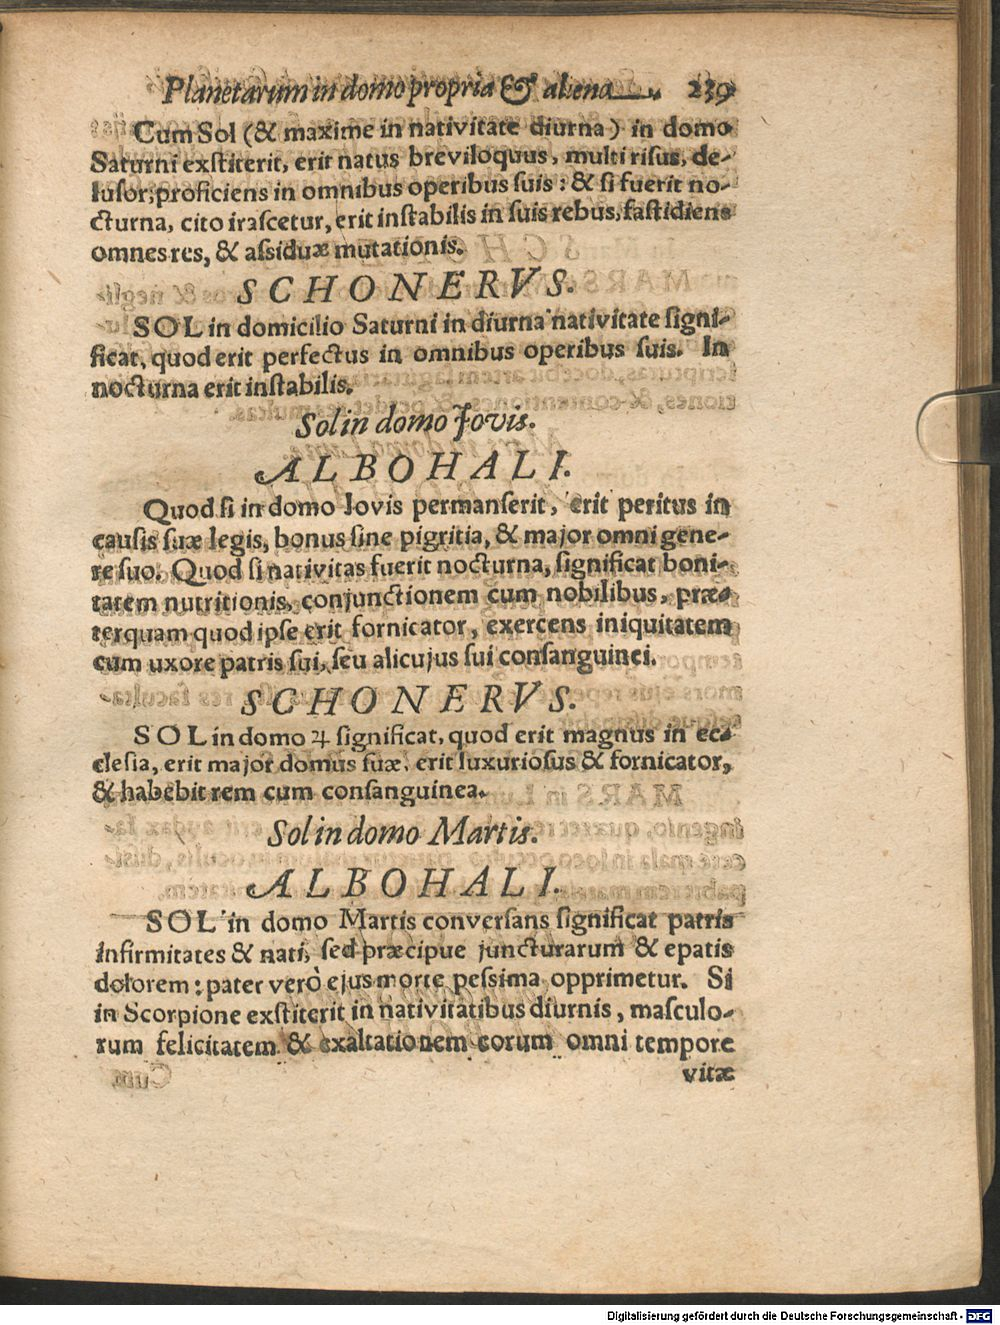 Planetarum in domo propria & aliena 239
Cum Sol (& maxime in nativitate diurna) in domo
Saturni exstiterit, erit natus breviloquus, multi risus, de-
lusor, proficiens in omnibus operibus suis: & si fuerit no-
cturna, cito irascetur, erit instabilis in suis rebus, fastidiens
omnes res, & assiduæ mutationis.
SCHONERVS.
SOL in domicilio Saturni in diurna nativitate signi-
ficat, quod erit perfectus in omnibus operibus suis. In
nocturna erit instabilis.
Sol in domo Jovis.
ALBOHALI.
Quod si in domo Iovis permanserit, erit peritus in
causis suæ legis, bonus sine pigritia, & major omni gene-
re suo. Quod si nativitas fuerit nocturna, significat boni-
tatem nutritionis, conjunctionem cum nobilibus, præ-
terquam quod ipse erit fornicator, exercens iniquitatem
cum uxore patris sui, seu alicujus sui consanguinei.
SCHONERVS.
SOL in domo ♃ significat, quod erit magnus in ec-
clesia, erit major domus suæ, erit luxuriosus & fornicator,
& habebit rem cum consanguinea.
Sol in domo Martis.
ALBOHALI.
SOL in domo Martis conversans significat patris
infirmitates & nati, sed præcipue juncturarum & epatis
dolorem: pater verò ejus morte pessima opprimetur. Si
in Scorpione exstiterit in nativitatibus diurnis, masculo-
rum felicitatem & exaltationem eorum omni tempore
vitæ
Digitalisierung gefördert durch die Deutsche Forschungsgemeinschaft - DFG